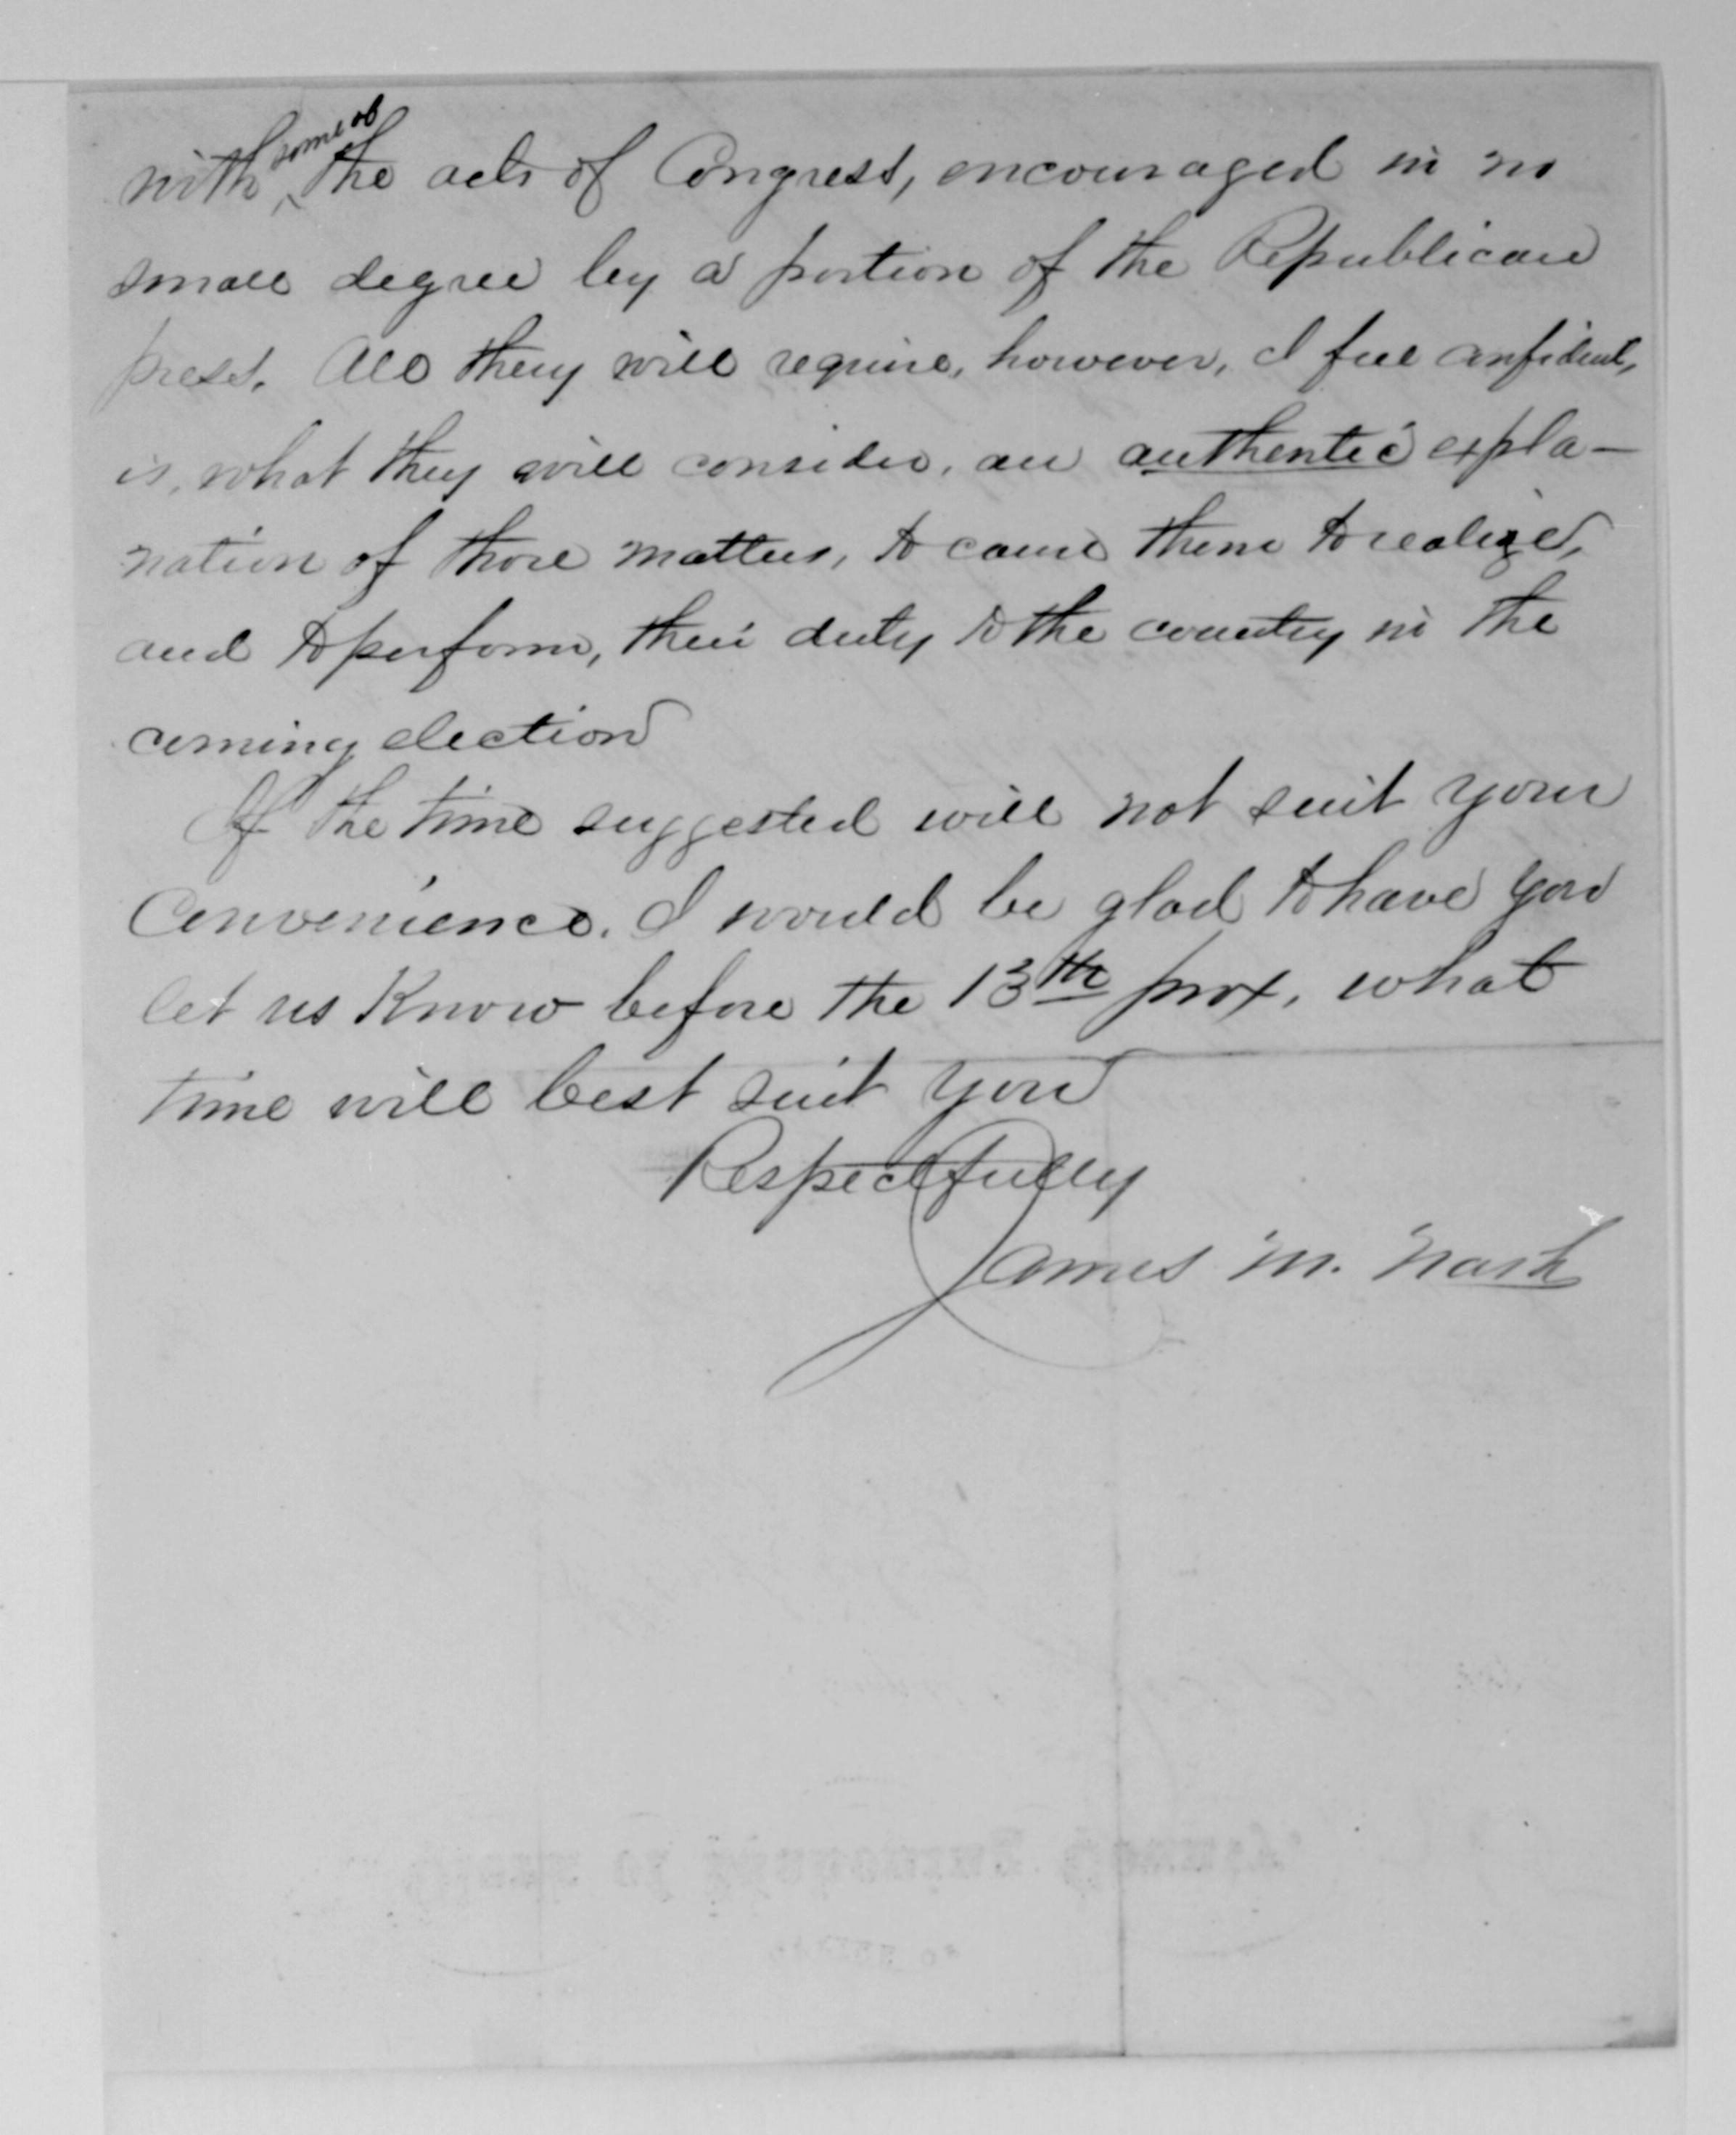 with some of the acts of Congress, encouraged in no
small degree by a portion of the Republican
press. All they will require, however, I feel confident,
is, what they will consider, an authentic expla-
nation of those matters, to cause them to realize,
and to perform, their duty to the country in the
coming election
If the time suggested will not suit your
Convenience, I would be glad to have you
let us Know before the 13th prox, what
time will best suit you
Respectfully
James M. Nash